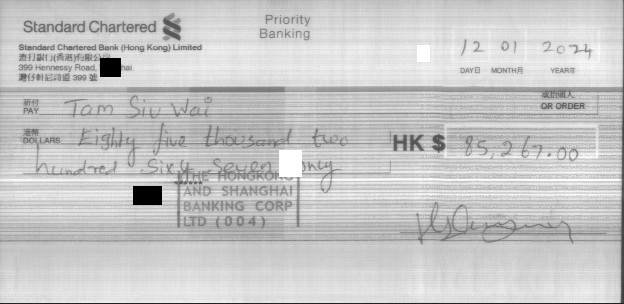 Standard Chartered
Priority
Banking
Standard Chartered Bank (Hong Kong) Limited
渣打銀行(香港)有限公司
399 Hennessy Road,
灣仔軒尼詩道 399 號
12 01 2024
DAY日 MONTH月 YEAR年
祈付
PAY Tam Siu Wai
或持票人
OR ORDER
港幣
DOLLARS Eighty five thousand two
hundred Sixty Seven only
HK $ 85,267.00
THE HONGKONG
AND SHANGHAI
BANKING CORP
LTD (004)